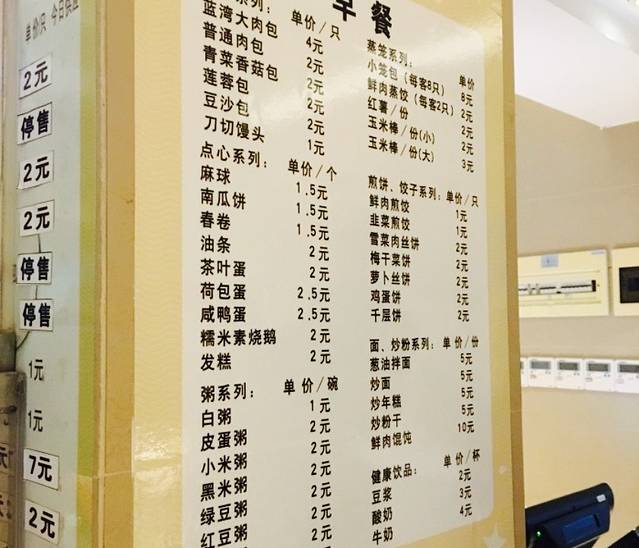 单价/只 今日供应
2元
停售
2元
2元
停售
停售
1元
1元
7元
2元
早餐
系列： 单价/只
蓝湾大肉包 4元
普通肉包 2元
青菜香菇包 2元
莲蓉包 2元
豆沙包 2元
刀切馒头 1元
点心系列： 单价/个
麻球 1.5元
南瓜饼 1.5元
春卷 1.5元
油条 2元
茶叶蛋 2元
荷包蛋 2.5元
咸鸭蛋 2.5元
糯米素烧鹅 2元
发糕 2元
粥系列： 单价/碗
白粥 1元
皮蛋粥 2元
小米粥 2元
黑米粥 2元
绿豆粥 2元
红豆粥 2元
蒸笼系列： 单价
小笼包（每客8只） 8元
鲜肉蒸饺（每客2只） 2元
红薯/份 2元
玉米棒/份(小) 2元
玉米棒/份(大) 3元
煎饼、饺子系列：单价/只
鲜肉煎饺 1元
韭菜煎饺 1元
雪菜肉丝饼 2元
梅干菜饼 2元
萝卜丝饼 2元
鸡蛋饼 2元
千层饼 2元
面、炒粉系列：单价/份
葱油拌面 5元
炒面 5元
炒年糕 5元
炒粉干 5元
鲜肉馄饨 10元
健康饮品： 单价/杯
豆浆 2元
酸奶 3元
牛奶 4元